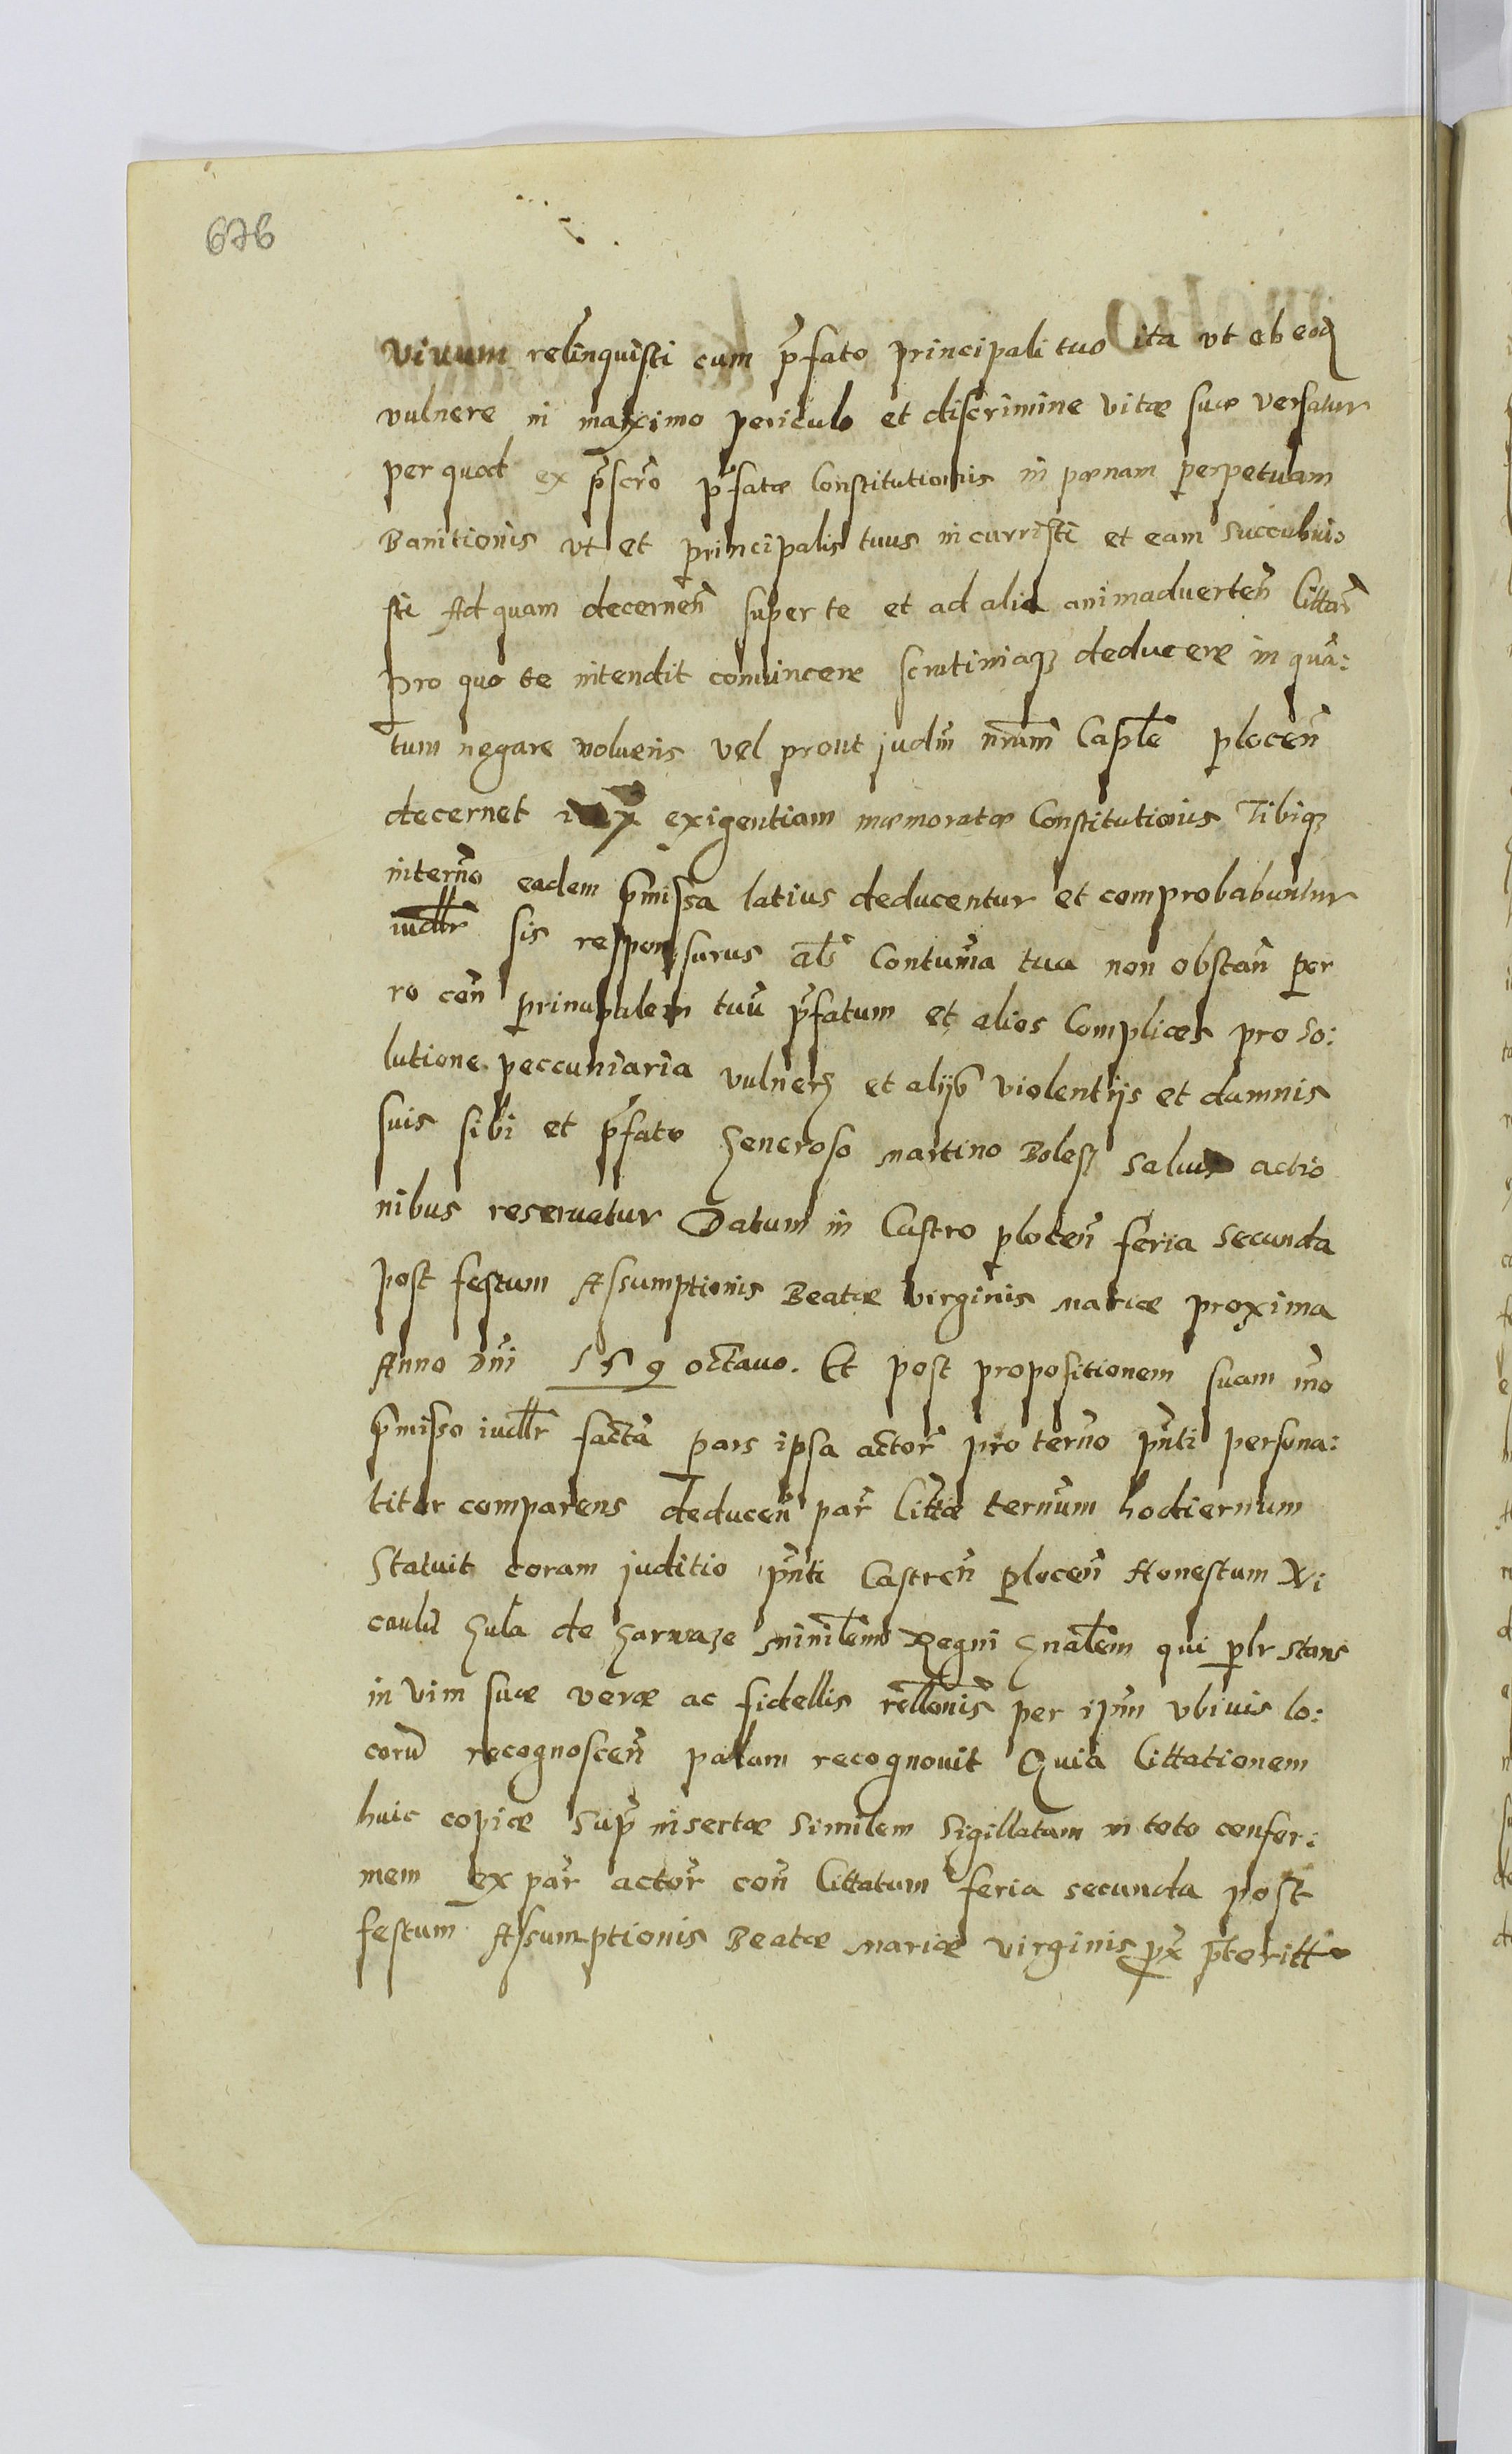 676
Viuum relinquisti cum p̃fato principali tuo ita vt ab eod
vulnere in maximo periculo et discrimine vitæ suæ versatur
per quod ex p̃scr̃o p̃fatæ Constitutionis in pœnam perpetuam
Banitionis vt et principalis tuus incurristi et eam succubui:
sti Ad quam decernen̄ super te et ad alia animaduerten̄ Citta͂r
pro quo te intendit conuincere scrutiniaq3 deducere in qua͂:
tum negare volueris vel prout judm̄ nrūm Capłe plocen̄
decernet exigentiam memoratæ Constitutionis Tibiq3
in terño eadem p̃missa latius deducentur et comprobabuntur
iudłłr sis responsurus ałs Contum̃a tua non obstan̄ per
ro con̄ principalem tuū p̃fatum et alios Complices pro so:
lutione peccuniaria vulner3 et alijs violentijs et damnis
suis sibi et p̃fato Generoso Martino Bolesz saluis actio
nibus reseruatur Datum in Castro plocen̄ feria secunda
post festum Assumptionis Beatæ virginis Mariæ proxima
Anno Dn̄i 159 octauo. Et post propositionem suam m̄o
p̃misso iudłłr facta͂ pars ipsa actor̃ pro terño pñti persona:
liter comparens deducen̄ par̃ Citta͂e terñum hodiernum
Statuit coram juditio pñti Castren̄ plocen̄ Honestum Ni
colau͂ Gula de Garwaze Ministłem Regni Gnałem qui płr stans
in vim suæ veræ ac fidellis rełłonis per ipm̄ vbiuis lo:
coru͂ recognoscen̄ palam recognouit Quia Cittationem
huic copiæ sup̃ insertæ similem sigillatam in toto confor:
mem ex par̃ actor̃ con̄ Cittatum feria secunda post
festum Assumptionis Beatæ Mariæ virginis px̃ p̃teritt